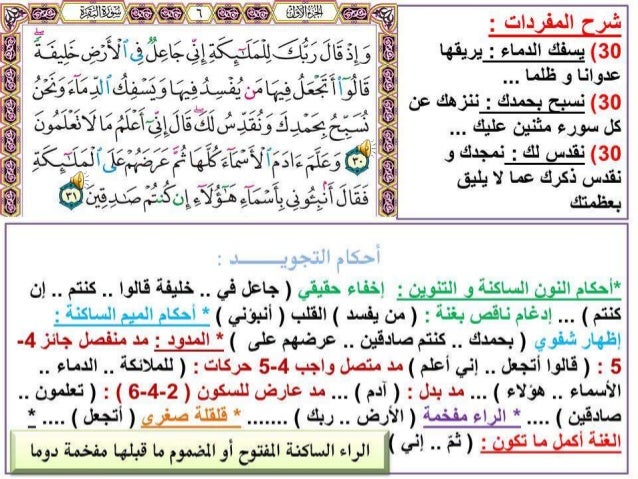 سورة البقرة
٦
الجزء الأول
وَإِذْ قَالَ رَبُّكَ لِلْمَلَٰٓئِكَةِ إِنِّي جَاعِلٌ فِي ٱلْأَرْضِ خَلِيفَةً
قَالُوٓا۟ أَتَجْعَلُ فِيهَا مَن يُفْسِدُ فِيهَا وَيَسْفِكُ ٱلدِّمَآءَ وَنَحْنُ
نُسَبِّحُ بِحَمْدِكَ وَنُقَدِّسُ لَكَ قَالَ إِنِّيٓ أَعْلَمُ مَا لَا تَعْلَمُونَ
٣٠ وَعَلَّمَ ءَادَمَ ٱلْأَسْمَآءَ كُلَّهَا ثُمَّ عَرَضَهُمْ عَلَى ٱلْمَلَٰٓئِكَةِ
فَقَالَ أَنۢبِـُٔونِي بِأَسْمَآءِ هَٰٓؤُلَآءِ إِن كُنتُمْ صَٰدِقِينَ ٣١
شرح المفردات :
30) يسفك الدماء : يريقها
عدوانا و ظلما ...
30) نسبح بحمدك : ننزهك عن
كل سورء مثنين عليك ...
30) نقدس لك : نمجدك و
نقدس ذكرك عما لا يليق
بعظمتك
أحكام التجويـــــــد :
*أحكام النون الساكنة و التنوين : إخفاء حقيقي ( جاعل في .. خليفة قالوا .. كنتم .. إن
كنتم ) ... إدغام ناقص بغنة : ( من يفسد ) القلب ( أنبؤني ) * أحكام الميم الساكنة :
إظهار شفوي ( بحمدك .. كنتم صادقين .. عرضهم على ) * المدود : مد منفصل جائز 4-
5 : ( قالوا أتجعل .. إني أعلم ) مد متصل واجب 4-5 حركات : ( للملائكة .. الدماء ..
الأسماء .. هؤلاء ) ... مد بدل : ( آدم ) ... مد عارض للسكون ( 2-4-6 ) : ( تعلمون ..
صادقين ) .... * الراء مفخمة ( الأرض .. ربك ) ....... * قلقلة صغرى ( أتجعل ) .... *
الغنة أكمل ما تكون : ( ثمّ .. إني )
الراء الساكنة المفتوح أو المضموم ما قبلها مفخمة دوما